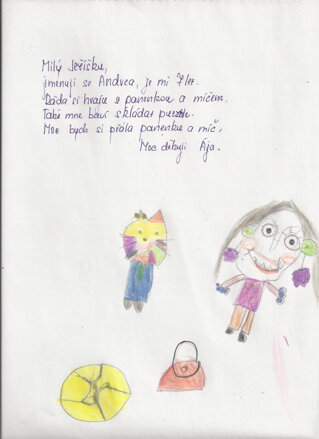 Milý Ježíšku,
jmenuji se Andrea, je mi 7 let.
Ráda si hraju s panenkou a míčem.
Také mne baví skládat puzzle.
Moc bych si přála panenku a míč,
Moc děkuji Ája.